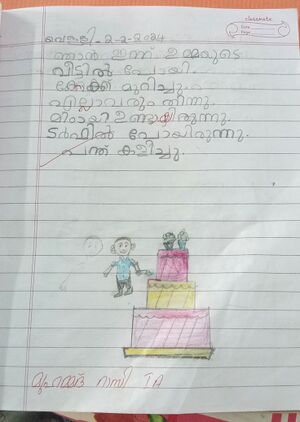 classmate
Date
Page
വെള്ളി - 2-2-2024
ഞാൻ ഇന്ന് ഉമ്മയുടെ
വീട്ടിൽ പോയി.
കേക്ക് മുറിച്ചു.
എല്ലാവരും തിന്നു.
മിഠായി ഉണ്ടായിരുന്നു.
ടർഫിൽ പോയിരുന്നു.
പന്ത് കളിച്ചു.
മുഹമ്മദ് റാസി IA